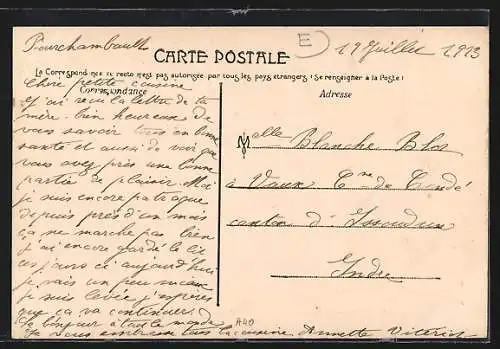 Pourchambault 19 Juillet 1913
E
CARTE POSTALE
La Correspondance au recto n'est pas autorisée par tous les pays étrangers (Se renseigner à la Poste)
Correspondance
Adresse
Chère petite cousine
J'ai reçu la lettre de ta
mère. bien heureux de
vous savoir tous en bonne
santé et aussi de voir que
vous avez pris une bonne
partie de plaisir. Moi
je suis encore patraque
depuis près d'un mois
ça ne marche pas bien
j'ai encore gardé le lit
ces jours ci aujourd'hui
je vais un peu mieux
je suis levée j'espère
que ça va continuer.
le bonjour à tout le monde
Je vous embrasse tous ta cousine Annette
A40
Melle Blanche Blot
à Vaux Cne de
canton d'Issoudun
Indre